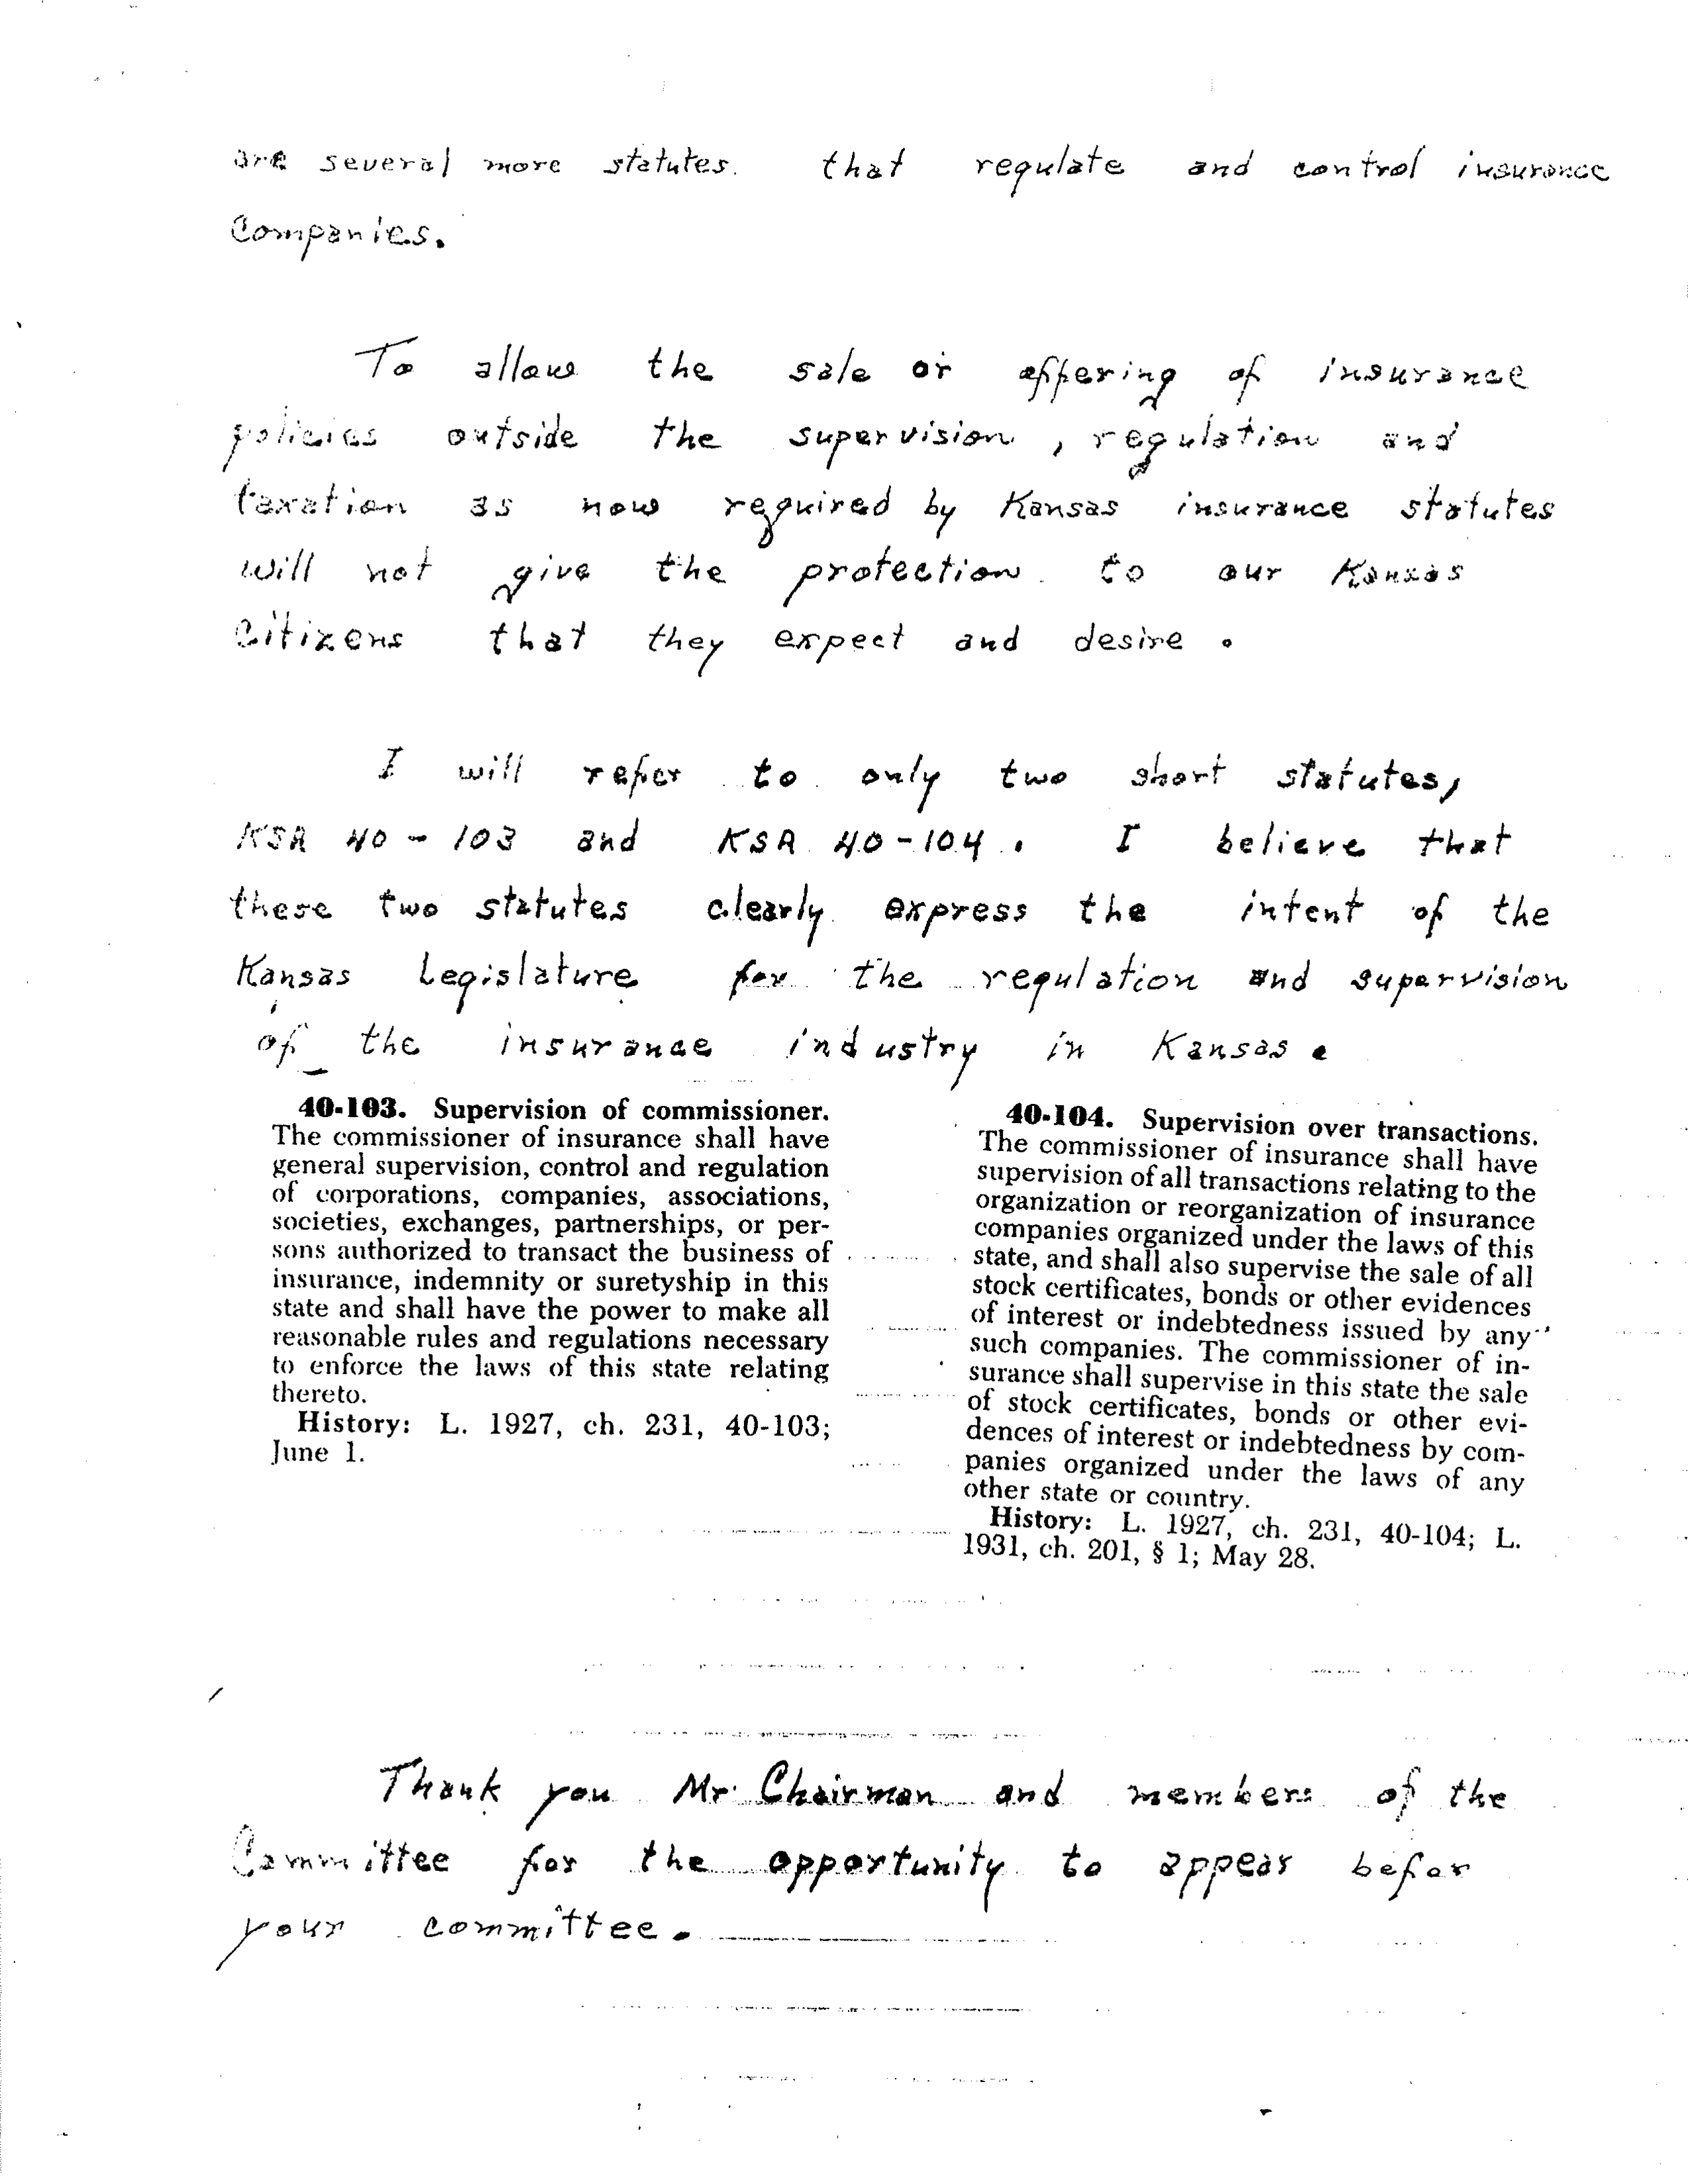 are several more statutes. that regulate and control insurance
Companies.
To allow the sale or offering of insurance
policies outside the supervision, regulation and
taxation as now required by Kansas insurance statutes
will not give the protection to our Kansas
Citizens that they expect and desire.
I will refer to only two short statutes,
KSA 40-103 and KSA 40-104. I believe that
these two statutes clearly express the intent of the
Kansas Legislature for the regulation and supervision
of the insurance industry in Kansas.
40-103. Supervision of commissioner.
The commissioner of insurance shall have
general supervision, control and regulation
of corporations, companies, associations,
societies, exchanges, partnerships, or per-
sons authorized to transact the business of
insurance, indemnity or suretyship in this
state and shall have the power to make all
reasonable rules and regulations necessary
to enforce the laws of this state relating
thereto.
History: L. 1927, ch. 231, 40-103;
June 1.
40-104. Supervision over transactions.
The commissioner of insurance shall have
supervision of all transactions relating to the
organization or reorganization of insurance
companies organized under the laws of this
state, and shall also supervise the sale of all
stock certificates, bonds or other evidences
of interest or indebtedness issued by any
such companies. The commissioner of in-
surance shall supervise in this state the sale
of stock certificates, bonds or other evi-
dences of interest or indebtedness by com-
panies organized under the laws of any
other state or country.
History: L. 1927, ch. 231, 40-104; L.
1931, ch. 201, § 1; May 28.
Thank you Mr. Chairman and members of the
Committee for the opportunity to appear befor
your committee.